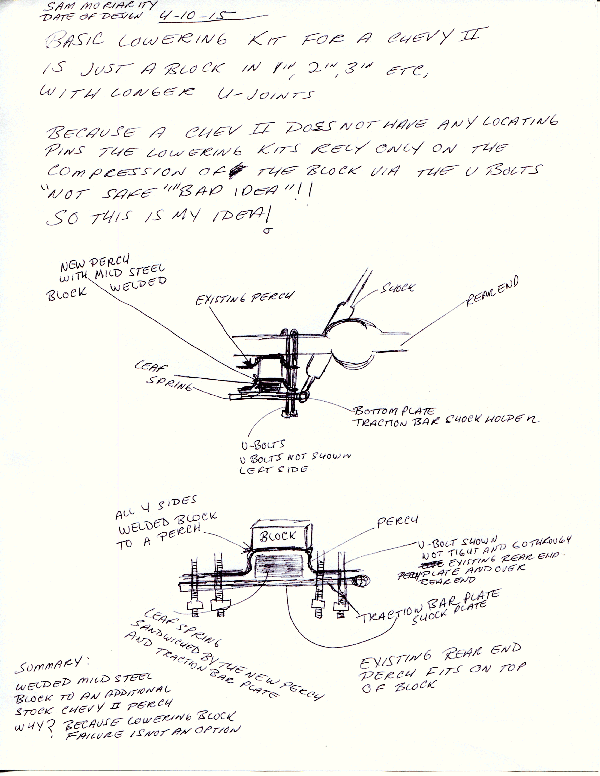 SAM MORIARITY
DATE OF DESIGN 4-10-15
BASIC LOWERING KIT FOR A CHEVY II
IS JUST A BLOCK IN 1", 2", 3" ETC,
WITH LONGER U-JOINTS
BECAUSE A CHEV II DOES NOT HAVE ANY LOCATING
PINS THE LOWERING KITS RELY ONLY ON THE
COMPRESSION OF THE BLOCK VIA THE U BOLTS
"NOT SAFE" "BAD IDEA"!!
SO THIS IS MY IDEA!
NEW PERCH
WITH MILD STEEL
BLOCK WELDED
EXISTING PERCH
SHOCK
REAR END
LEAF
SPRING
BOTTOM PLATE
TRACTION BAR SHOCK HOLDER.
U-BOLTS
U BOLTS NOT SHOWN
LEFT SIDE
ALL 4 SIDES
WELDED BLOCK
TO A PERCH
BLOCK
PERCH
U-BOLT SHOWN
NOT TIGHT AND GO THROUGH
EXISTING REAR END
PLATE AND OVER
REAR END
TRACTION BAR PLATE
SHOCK PLATE
LEAF SPRING
SANDWICHED BY THE NEW PERCH
AND TRACTION BAR PLATE
EXISTING REAR END
PERCH FITS ON TOP
OF BLOCK
SUMMARY:
WELDED MILD STEEL
BLOCK TO AN ADDITIONAL
STOCK CHEVY II PERCH
WHY? BECAUSE LOWERING BLOCK
FAILURE IS NOT AN OPTION